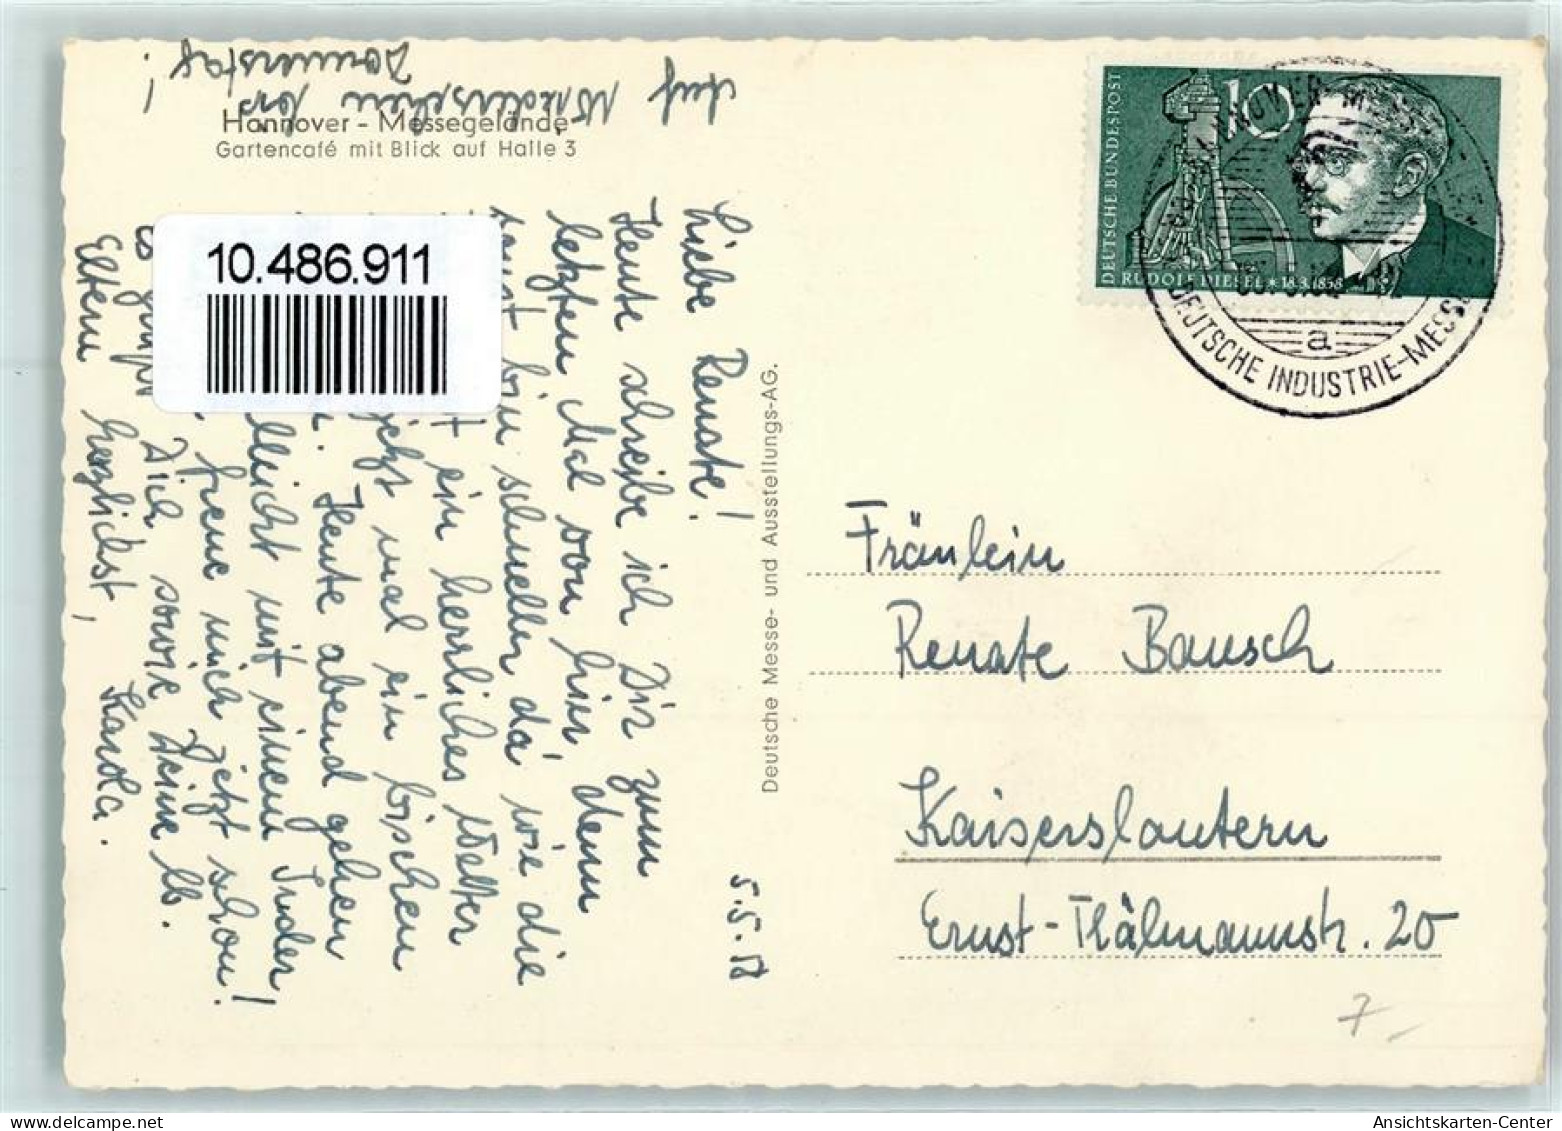 Auf Wiedersehen bis
Donnerstag!
Hannover - Messegelände
Gartencafé mit Blick auf Halle 3
10.486.911
5.5.58
Liebe Renate!
Heute schreibe ich Dir zum
letzten Mal von hier, denn
bin schneller da wie die
ein herrliches Wetter
jetzt mal ein bischen
Heute abend gehen
mit einem Inder!
freue mich jetzt schon!
Es grüßt Dich sowie Deine lb.
Eltern herzlichst,
Karola.
Deutsche Messe- und Ausstellungs-AG.
DEUTSCHE BUNDESPOST
10
RUDOLF DIESEL * 18.3.1858
HANNOVER-MESSE
a
DEUTSCHE INDUSTRIE-MESSE
Fräulein
Renate Bausch
Kaiserslautern
Ernst-Thälmannstr. 20
7,-
Ansichtskarten-Center